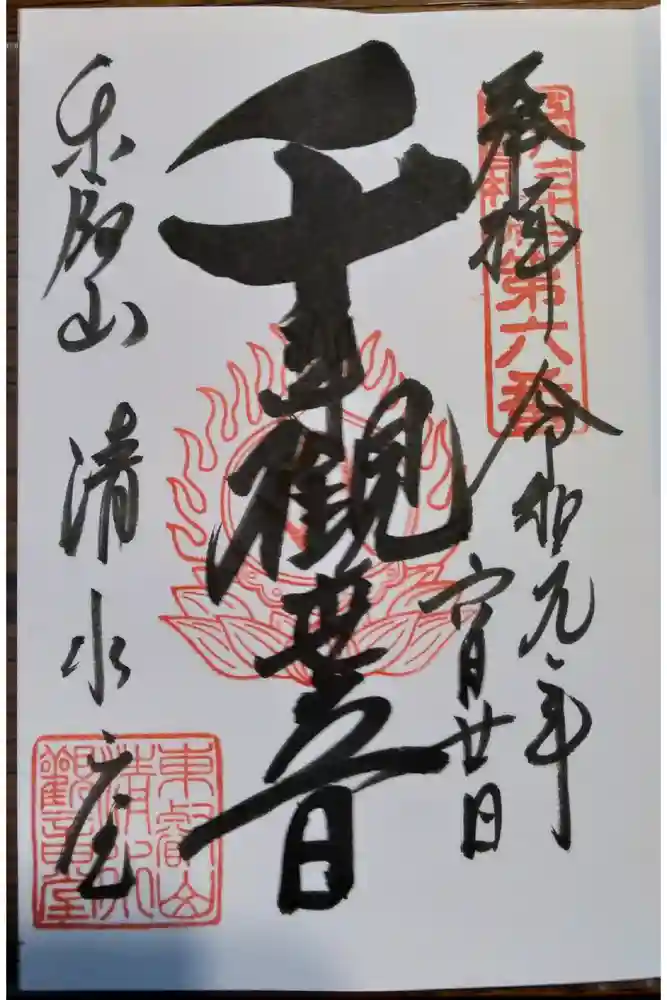 奉拝
令和元年
六月廿日
千手觀世音
東叡山 清水堂
第六番
東叡山
清水
觀音堂